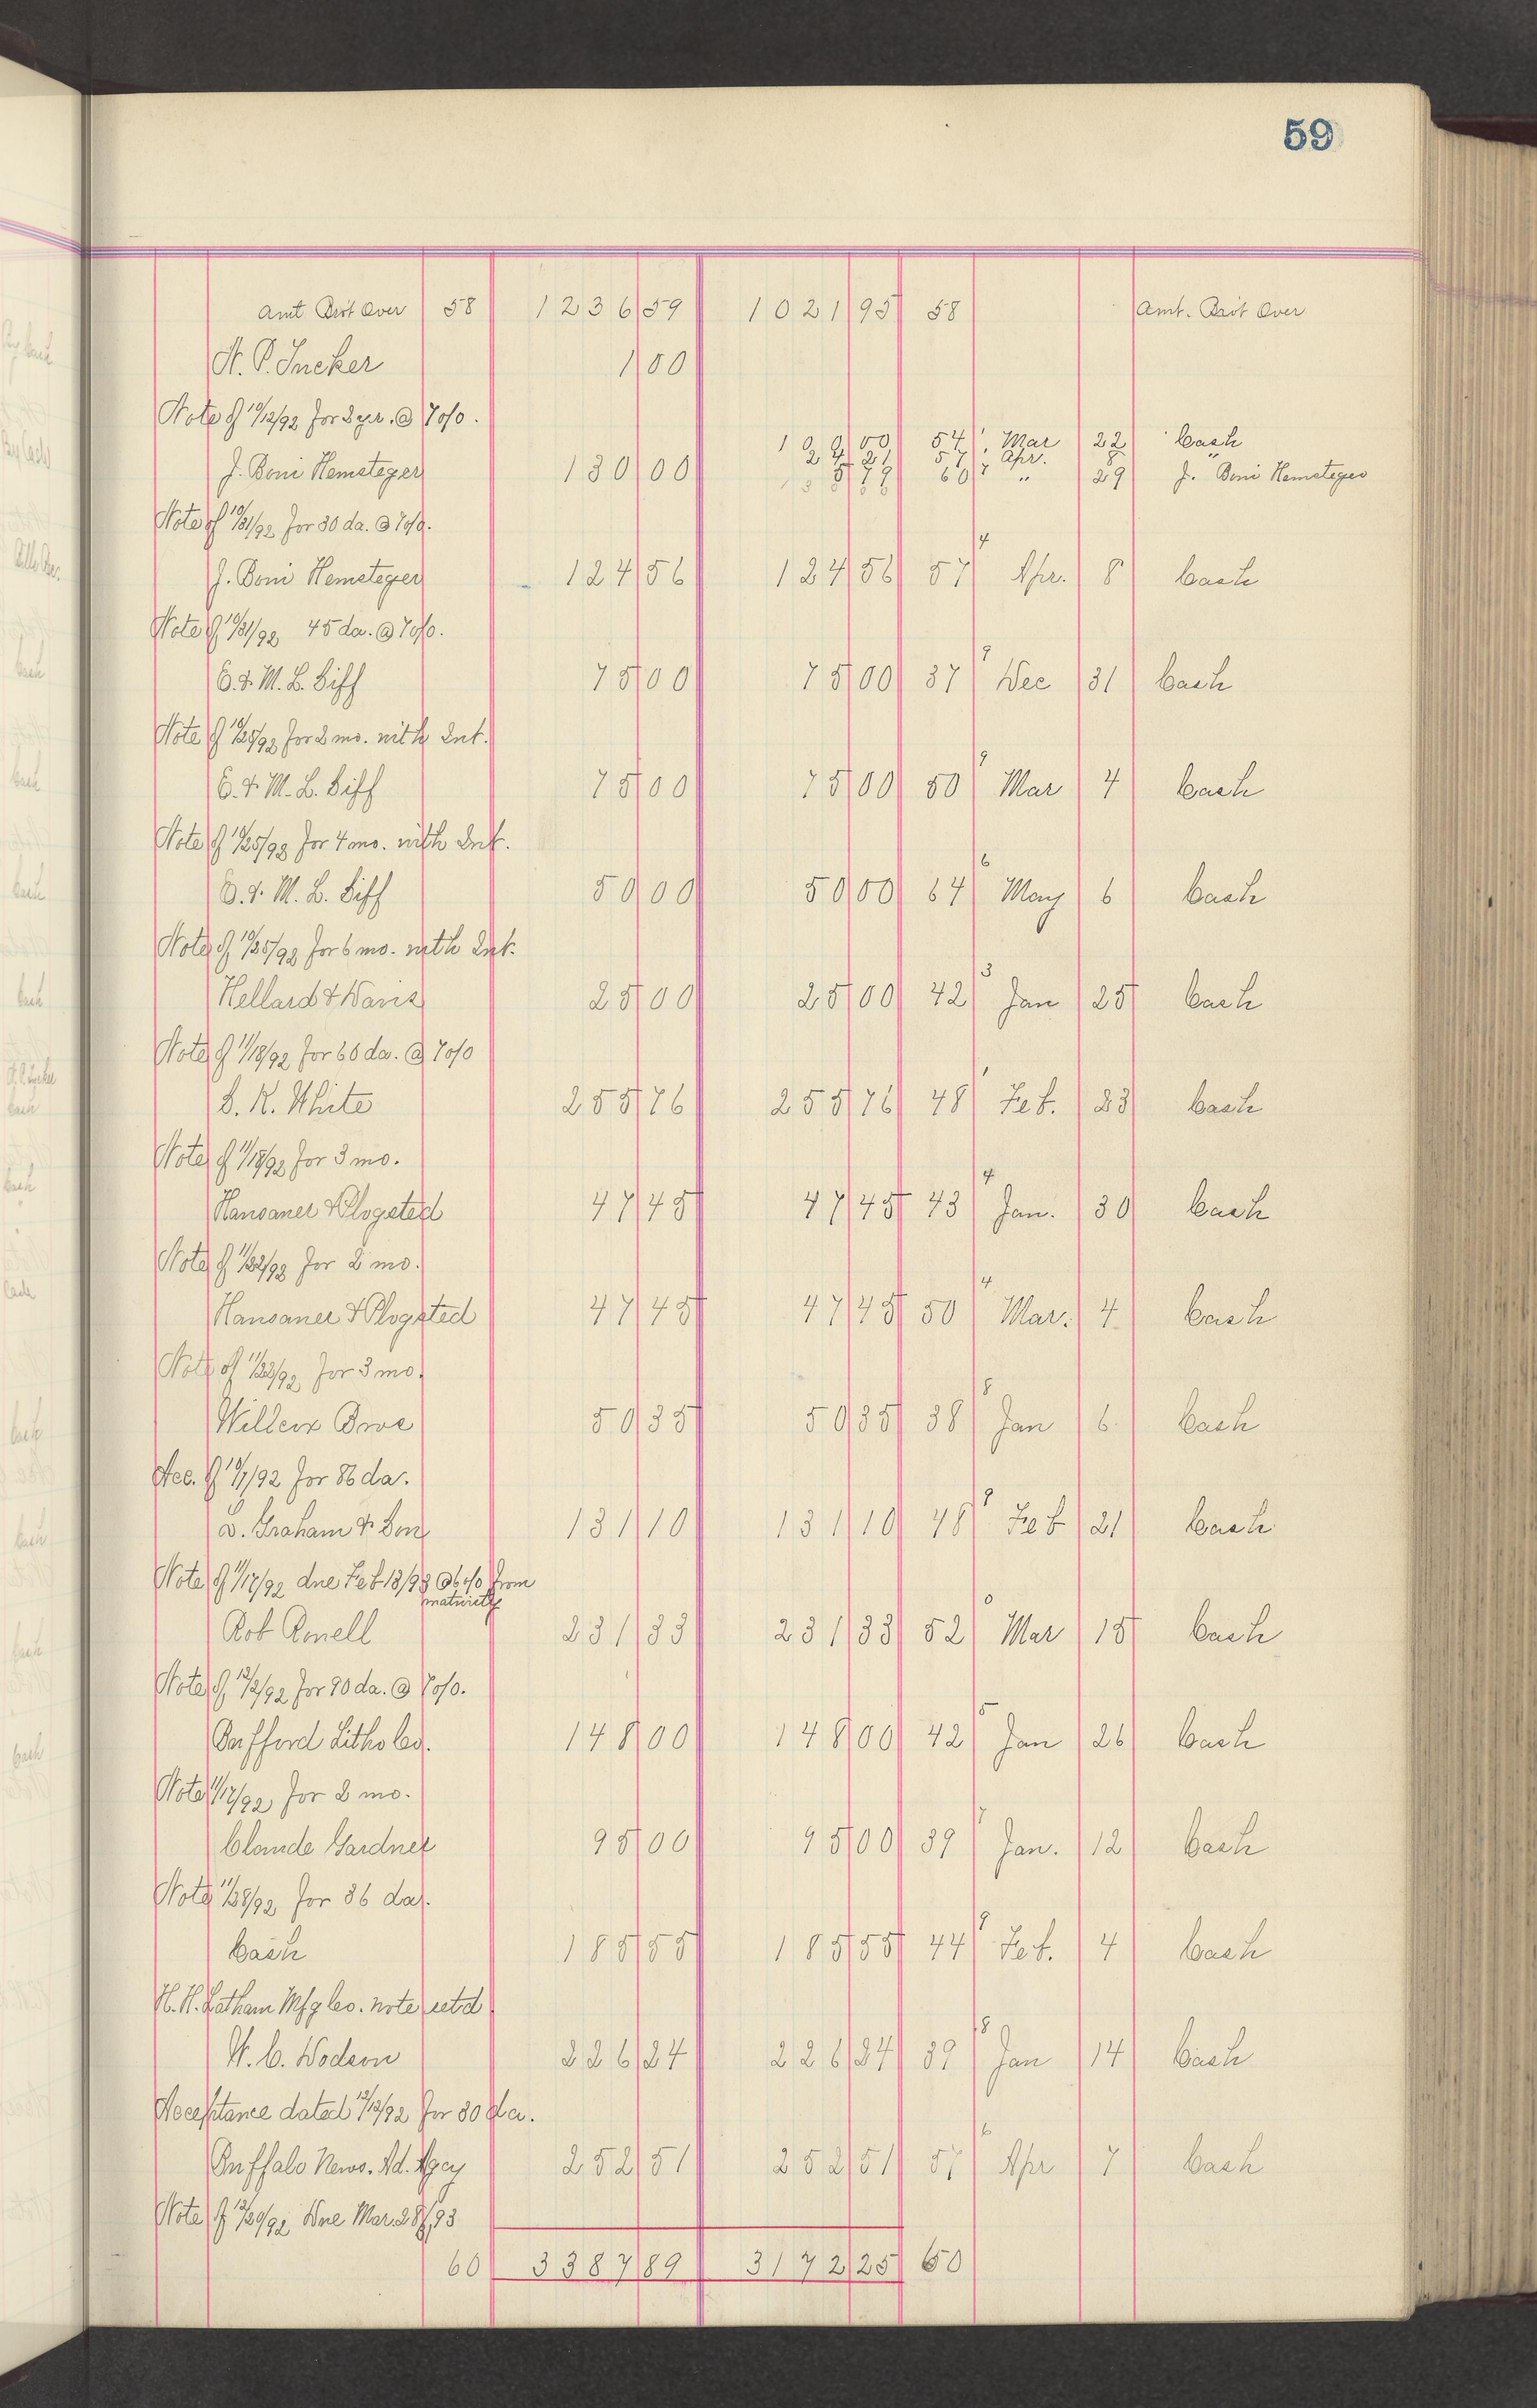 59
Amt Brot Over 58 1236 59 1021 95 58 Amt. Brot Over
1 00
Note of 10/12/92 for 3 yr. @ 7 o/o.
100 00 54 Mar 22 Cash
24 21 57 Apr. "
J. Boni Hemsteger 130 00 5 79 60 " 29 J. Boni Hemsteger
130 00
Note of 10/31/92 for 30 da. @ 7 o/o.
J. Boni Hemsteger 124 56 124 56 57 4 Apr. 8 Cash
Note of 10/31/92 45 da. @ 7 o/o.
C. & M. L. Siff 75 00 75 00 37 9 Dec 31 Cash
Note of 10/25/92 for 2 mo. with Int.
C. & M. L. Siff 75 00 75 00 50 9 Mar 4 Cash
Note of 10/25/92 for 4 mo. with Int.
C. & M. L. Siff 50 00 50 00 64 6 May 6 Cash
Note of 10/25/92 for 6 mo. with Int.
25 00 25 00 42 3 Jan 25 Cash
Note of 11/18/92 for 60 da. @ 7 o/o
S. R. White 255 76 255 76 48 1 Feb. 23 Cash
Note of 11/18/92 for 3 mo.
47 45 47 45 43 4 Jan. 30 Cash
Note of 11/22/92 for 2 mo.
47 45 47 45 50 4 Mar. 4 Cash
Note of 11/22/92 for 3 mo.
50 35 50 35 38 8 Jan 6 Cash
for da.
D. Graham & Son 131 10 131 10 48 9 Feb 21 Cash
Note of 11/17/92 due Feb 18/93 @ 6 o/o from
maturity
231 33 231 33 52 0 Mar 15 Cash
Note of 12/2/92 for 90 da. @ 7 o/o.
Bufford Litho Co. 148 00 148 00 42 5 Jan 26 Cash
Note 11/17/92 for 2 mo.
Claude Gardner 95 00 95 00 39 7 Jan. 12 Cash
Note for 36 da.
Cash 185 55 185 55 44 9 Feb. 4 Cash
Latham Mfg Co. note retd
W. C. Wodson 226 24 226 24 39 8 Jan 14 Cash
Acceptance dated 12/13/92 for 30 da.
Buffalo News. Ad. Agcy 252 51 252 51 57 6 Apr 7 Cash
Note of 12/29/92 Due Mar. 28/93
60 3387 89 3172 25 60